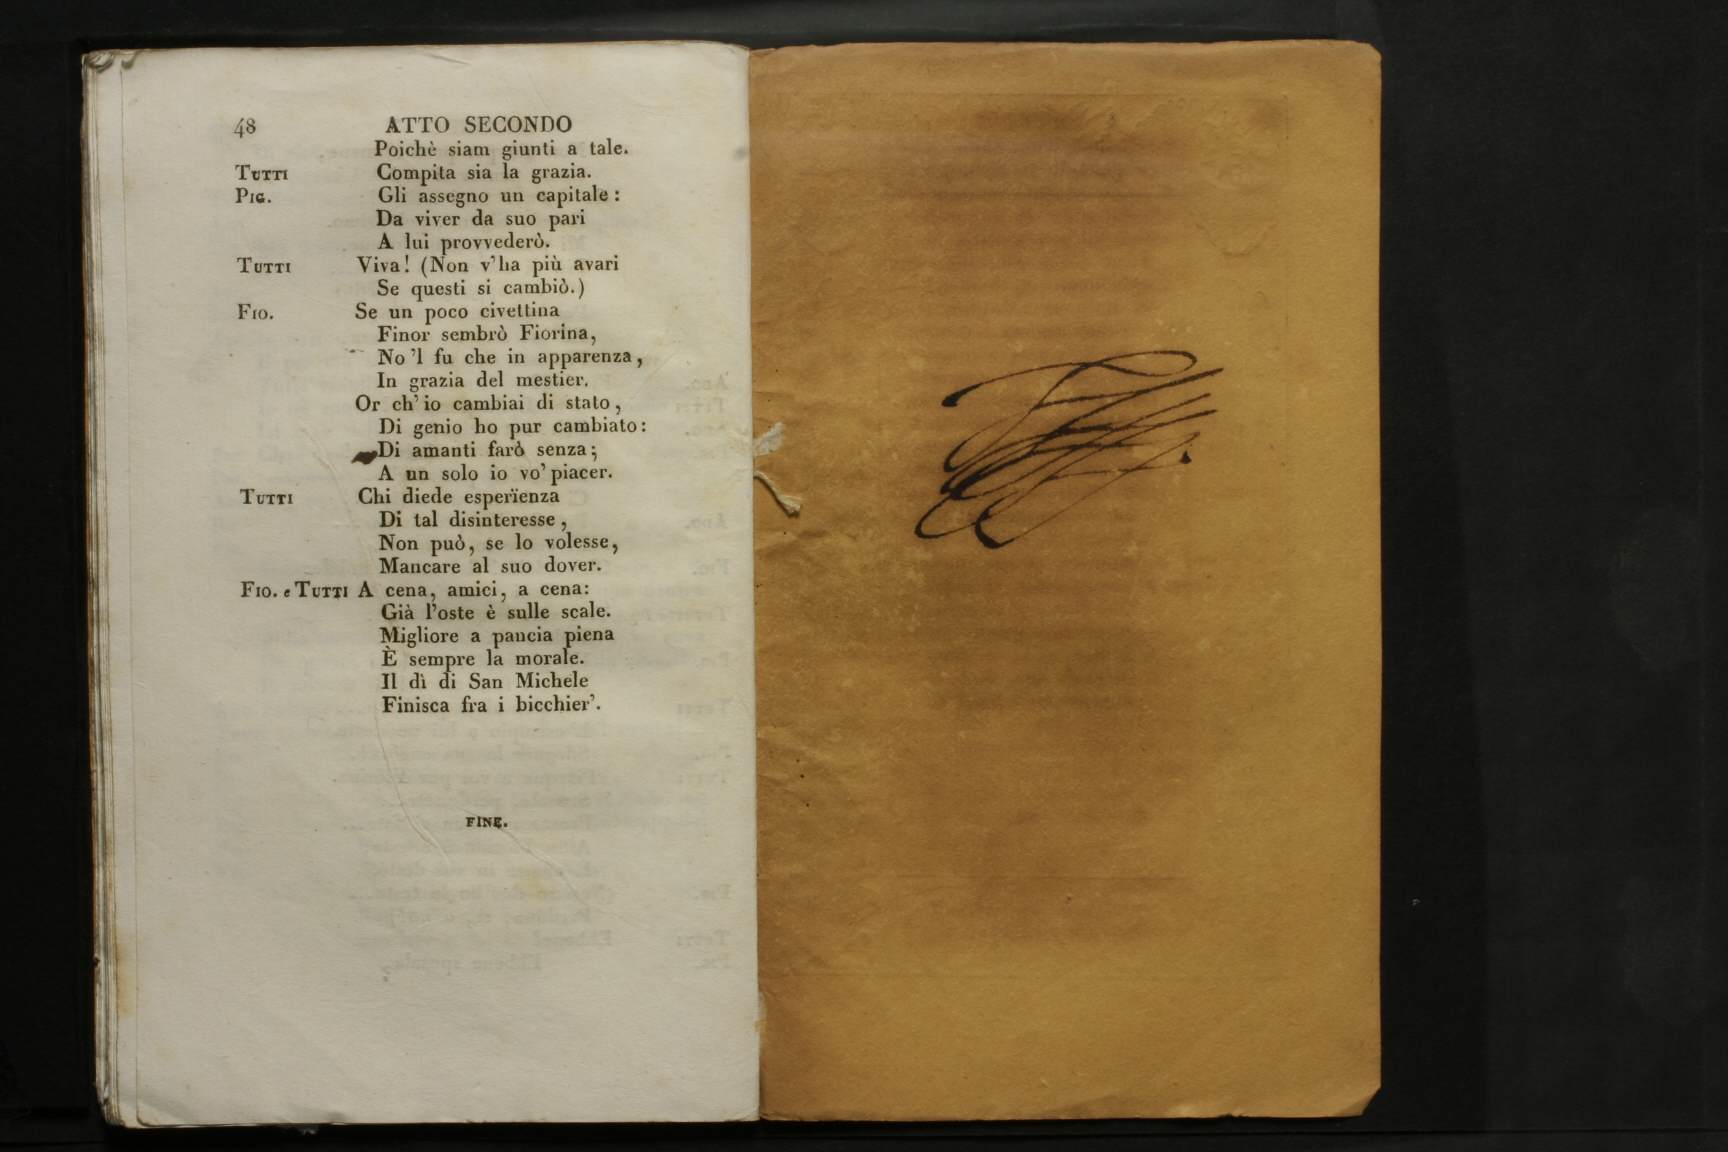 48 ATTO SECONDO
Poichè siam giunti a tale.
TUTTI Compita sia la grazia.
PIG. Gli assegno un capitale :
Da viver da suo pari
A lui provvederò.
TUTTI Viva! (Non v'ha più avari
Se questi si cambiò.)
FIO. Se un poco civettina
Finor sembrò Fiorina,
No 'l fu che in apparenza,
In grazia del mestier.
Or ch' io cambiai di stato,
Di genio ho pur cambiato:
Di amanti farò senza;
A un solo io vo' piacer.
TUTTI Chi diede esperïenza
Di tal disinteresse,
Non può, se lo volesse,
Mancare al suo dover.
FIO. e TUTTI A cena, amici, a cena:
Già l'oste è sulle scale.
Migliore a pancia piena
È sempre la morale.
Il dì di San Michele
Finisca fra i bicchier'.
FINE.